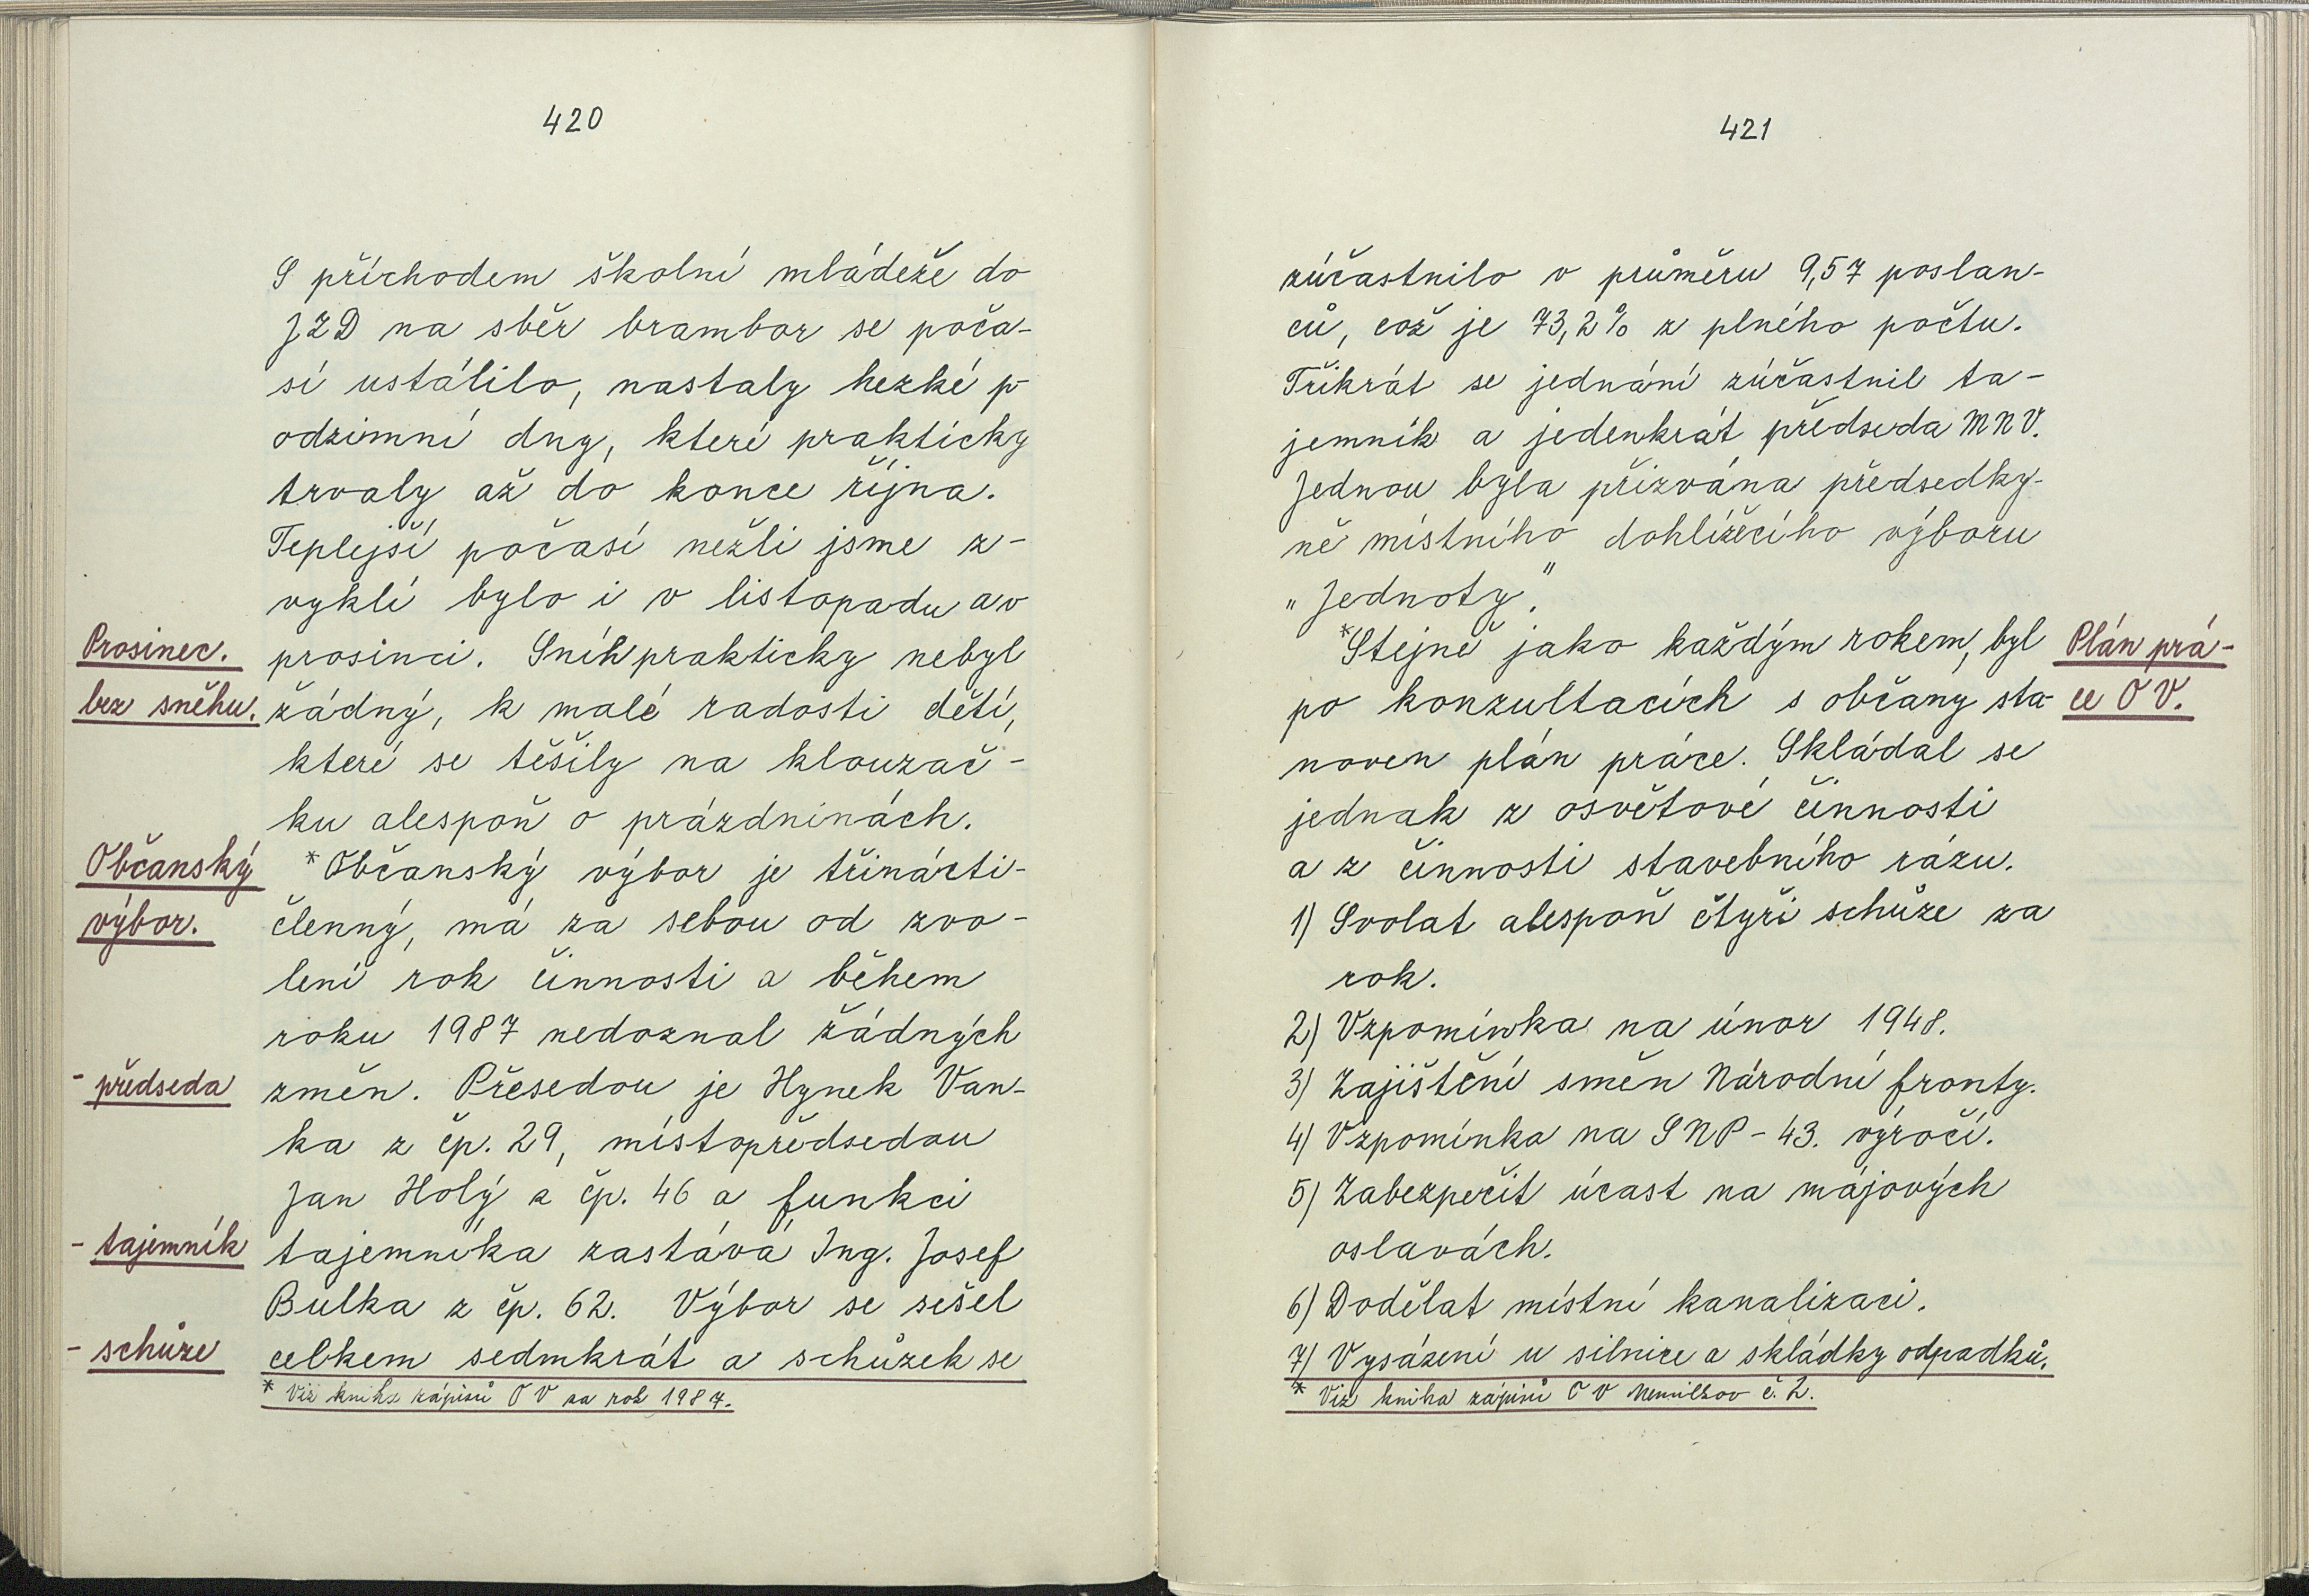 420
S příchodem školní mládeže do
JZD na sběr brambor se poča-
sí ustálilo, nastaly hezké p
odzimní dny, které prakticky
trvaly až do konce října.
Teplejší počasí nežli jsme z-
vyklí bylo i v listopadu a v
Prosinec.
prosinci. Sníh prakticky nebyl
bez sněhu.
žádný, k malé radosti dětí,
které se těšily na klouzač-
ku alespoň o prázdninách.
Občanský
*Občanský výbor je třinácti-
výbor.
členný, má za sebou od zvo-
lení rok činnosti a během
roku 1987 nedoznal žádných
- předseda
změn. Přesedou je Hynek Van-
ka z čp. 29, místopředsedou
Jan Holý z čp. 46 a funkci
- tajemník
tajemníka zastává Ing. Josef
Bulka z čp. 62. Výbor se sešel
- schůze
celkem sedmkrát a schůzek se
* Viz kniha zápisů OV za rok 1987.
421
zúčastnilo v průměru 9,57 poslan-
ců, což je 73,2% z plného počtu.
Třikrát se jednání zúčastnil ta-
jemník a jedenkrát předseda MNV.
Jednou byla přizvána předsedky-
ně místního dohlížěcího výboru
„Jednoty."
*Stejně jako každým rokem, byl
Plán prá-
po konzultacích s občany sta-
ce OV.
noven plán práce. Skládal se
jednak z osvětové činnosti
a z činnosti stavebního rázu.
1) Svolat alespoň čtyři schůze za
rok.
2) Vzpomínka na únor 1948.
3) Zajištění směn Národní fronty.
4) Vzpomínka na SNP - 43. výročí.
5) Zabezpečit účast na májových
oslavách.
6) Dodělat místní kanalizaci.
7) Vysázení u silnice a skládky odpadků.
* Viz kniha zápisů OV č. 2.